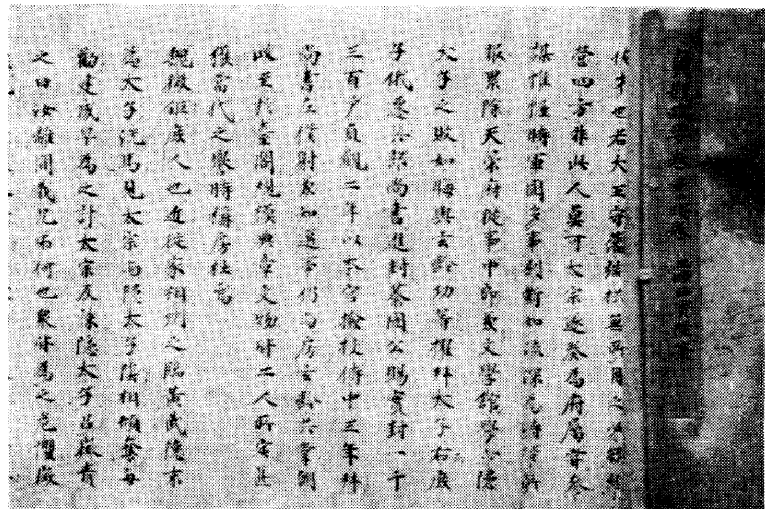 才也若大王守藩端拱無所用之必欲經
營四方非此人莫可太宗遂奏為府屬常參
謀帷幄時軍國多事剖斷如流深為時輩所
服累除天策府從事中郎兼文學館學士隱
太子之敗如晦與玄齡功等擢拜太子右庶
子俄遷兵部尚書進封蔡國公賜實封一千
三百戶貞觀二年以本官檢校侍中三年拜
尚書左僕射兼知選事仍與房玄齡共掌朝
政至於臺閣規模典章文物皆二人所定甚
獲當代之譽時稱房杜焉
魏徵鉅鹿人也近徙家相州之臨黃武德末
為太子洗馬見太宗与隱太子陰相傾奪每
勸建成早為之計太宗及誅隱太子召徵責
之曰汝離間我兄弟何也衆皆為之危懼徵